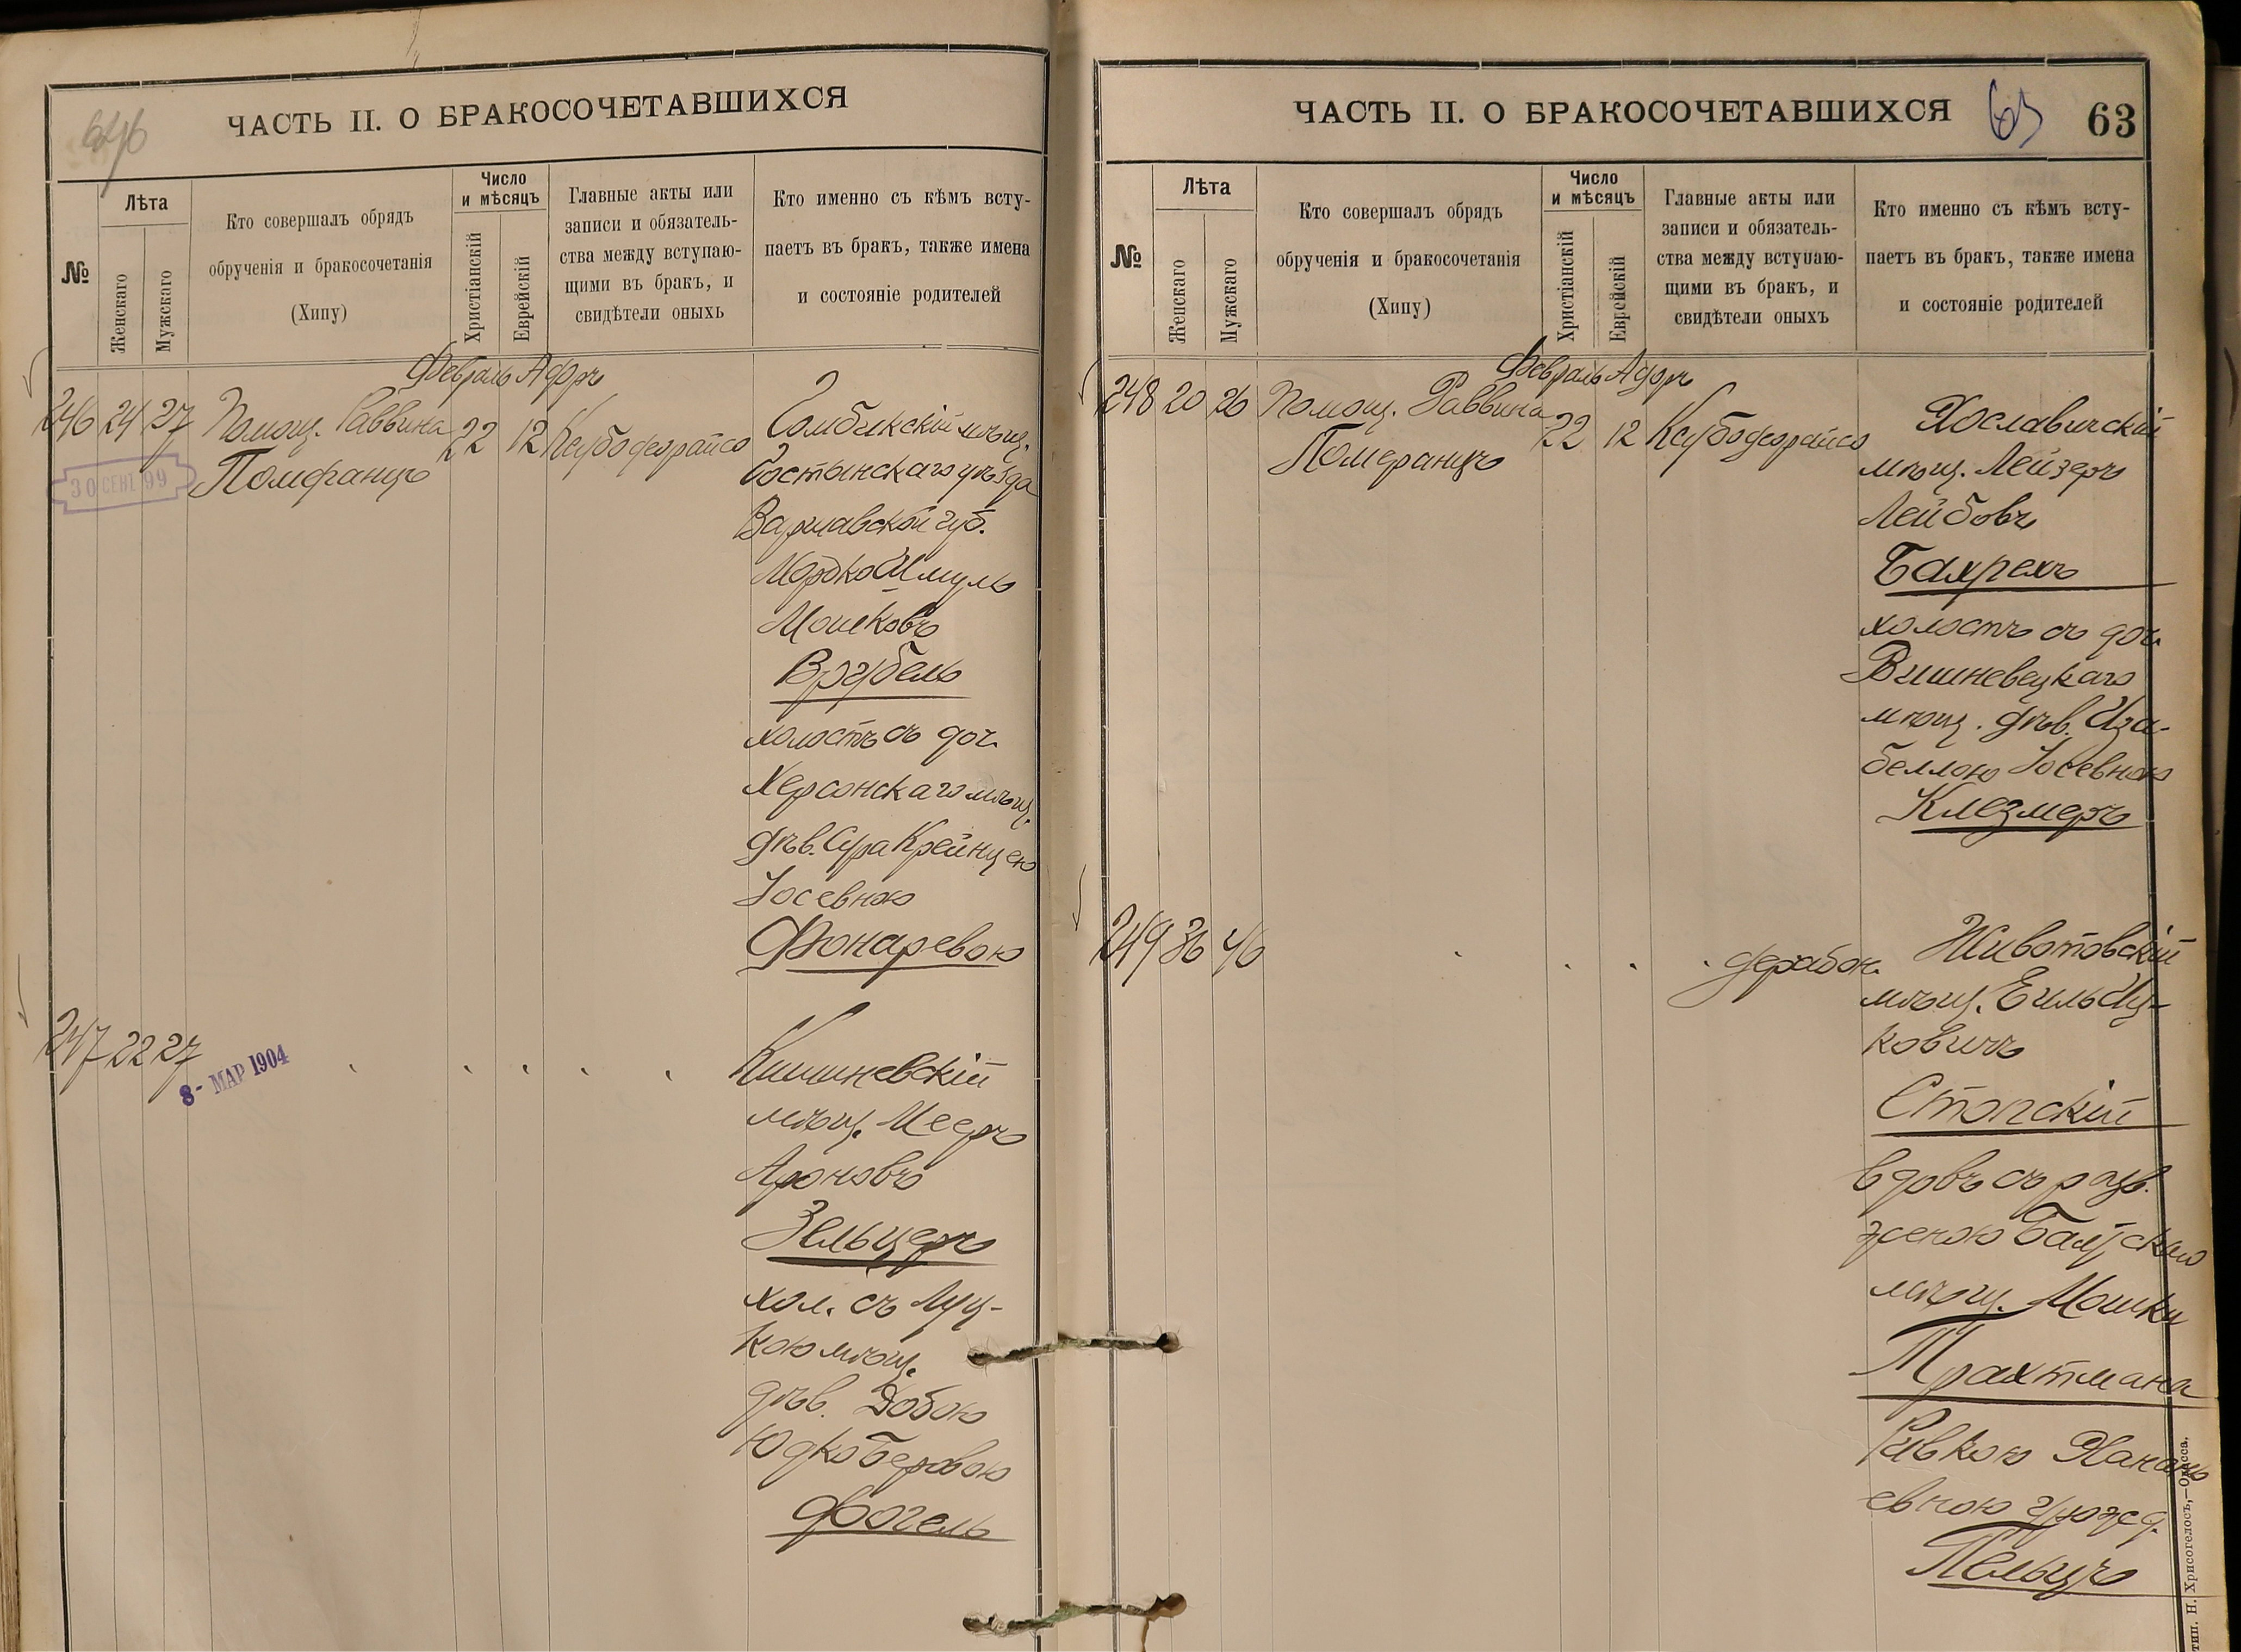 ЧАСТЬ II. О БРАКОСОЧЕТАВШИХСЯ
№
Лѣта
Женскаго
Мужскаго
Кто совершалъ обрядъ
обрученія и бракосочетанія
(Хипу)
Число
и мѣсяцъ
Христіанскій
Еврейскій
Главные акты или
записи и обязатель-
ства между вступаю-
щими въ бракъ, и
свидѣтели оныхъ
Кто именно съ кѣмъ всту-
паетъ въ бракъ, также имена
и состояніе родителей
Февраль Адаръ
246 24 27 Помощ. Раввина 22 12
Померанцъ
30 СЕН 99
Гомбинскій мѣщ.
Гостынскаго уѣзда
Варшавской губ.
Мордко Шмуль
Мошковъ
Врубель
холостъ съ доч.
Херсонскаго мѣщ.
дѣв. Сура Крейнцею
Іосевною
Фонаревою
247 22 27
8- МАР 1904
Кишиневскій
мѣщ. Мееръ
Ароновъ
Зельцеръ
хол. съ Луц-
кою мѣщ.
дѣв. Добою
Юдко Беровою
Фогель
ЧАСТЬ II. О БРАКОСОЧЕТАВШИХСЯ
63
63
№
Лѣта
Женскаго
Мужскаго
Кто совершалъ обрядъ
обрученія и бракосочетанія
(Хипу)
Число
и мѣсяцъ
Христіанскій
Еврейскій
Главные акты или
записи и обязатель-
ства между вступаю-
щими въ бракъ, и
свидѣтели оныхъ
Кто именно съ кѣмъ всту-
паетъ въ бракъ, также имена
и состояніе родителей
Февраль Адаръ
248 20 26 Помощ. Раввина 22 12
Померанцъ
Хославичскій
мѣщ. Лейзеръ
Лейбовъ
Бахрехъ
холостъ съ доч.
Вишневецкаго
мѣщ. дѣв. Иза-
беллою Іосевною
Клезмеръ
249 36 46
Животовскій
мѣщ. Ехиль Иц-
ковичъ
Стопскій
вдовъ съ разв.
женою Балтскаго
мѣщ. Мошки
Трахтмана
Ривкою Ханань
евною урожд.
Пельцъ
тип. Н. Хрисогелосъ,—Одесса.